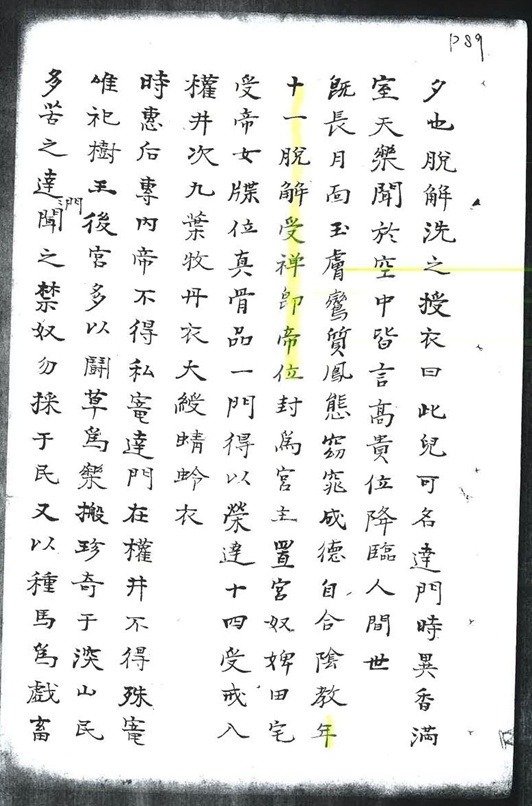 P89
夕也脫解洗之授衣曰此兒可名達門時異香滿
室天樂聞於空中皆言高貴位降臨人間世
旣長月面玉膚鸞質鳳態窈窕成德自合陰教年
十一脫解受禅卽帝位封爲宮主置宮奴婢田宅
受帝女牒位真骨品一門得以榮達十四受戒入
權井次九葉牧丹衣大綬蜻蛉衣
時惠后專內帝不得私寵達門在權井不得殊寵
唯祀樹王後宮多以鬪草爲樂搬珍奇于深山民
多苦之達門聞之禁奴勿採于民又以種馬爲戲畜